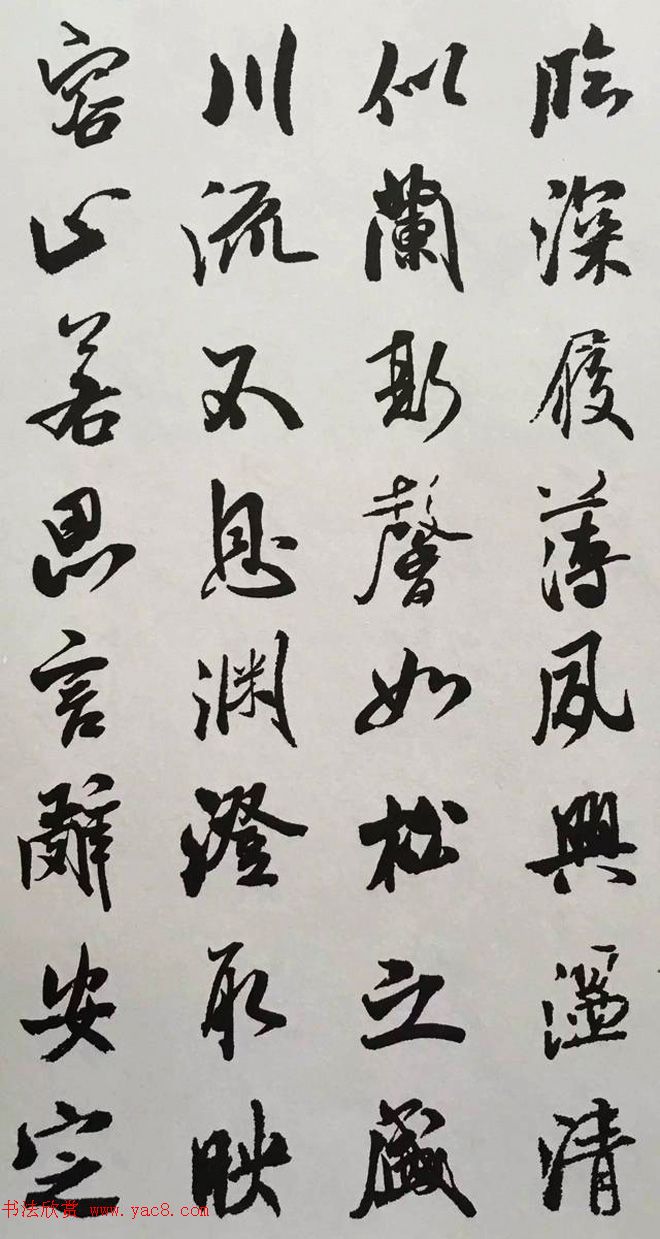 臨深履薄夙興温清
似蘭斯馨如松之盛
川流不息淵澄取映
容止若思言辭安定
书法欣赏 www.yac8.com